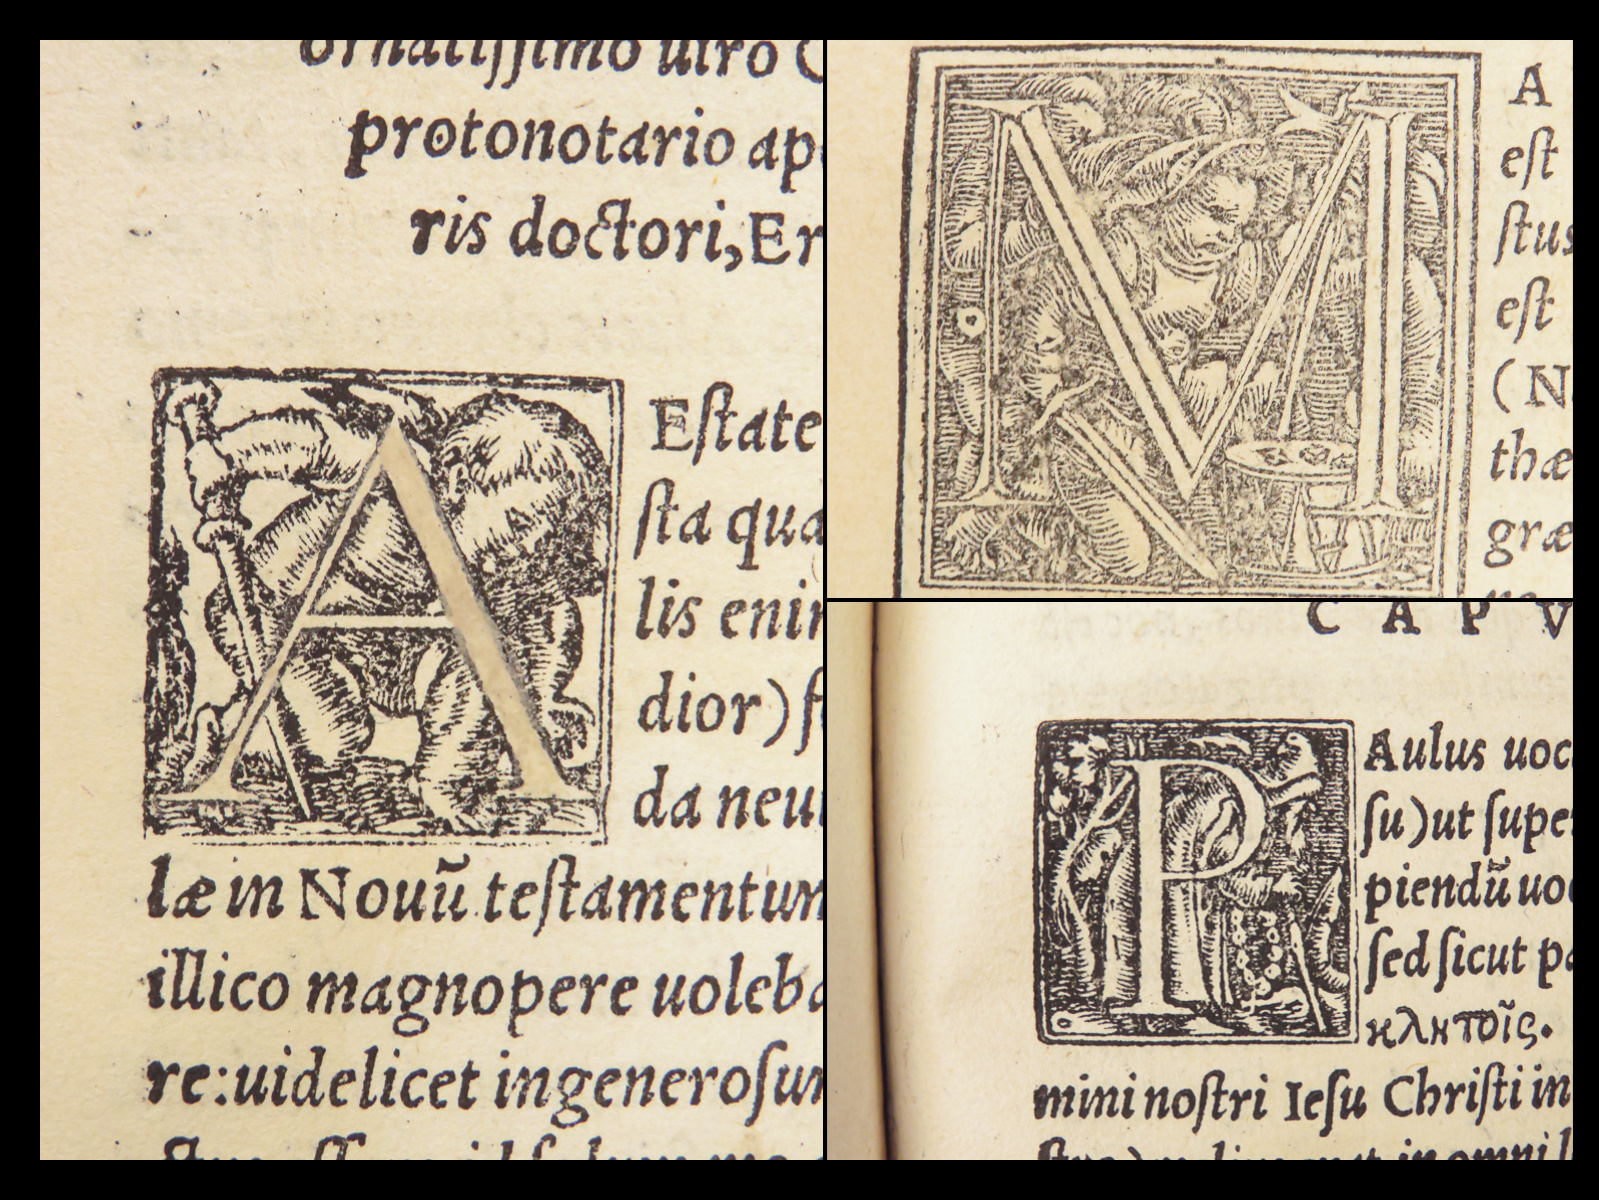 ornatissimo uiro
protonotario ap
ris doctori, Er
A Estate
sta qua
lis enim
dior) f
da neu
læ in Nouũ testamentum
illico magnopere uoleba
re: uidelicet in generosum
M A
est
stus
est
( N
thæ
græ
C A P V
P Aulus uoc
su) ut super
piendũ uoc
sed sicut pa
κλητοῖς.
mini nostri Iesu Christi in